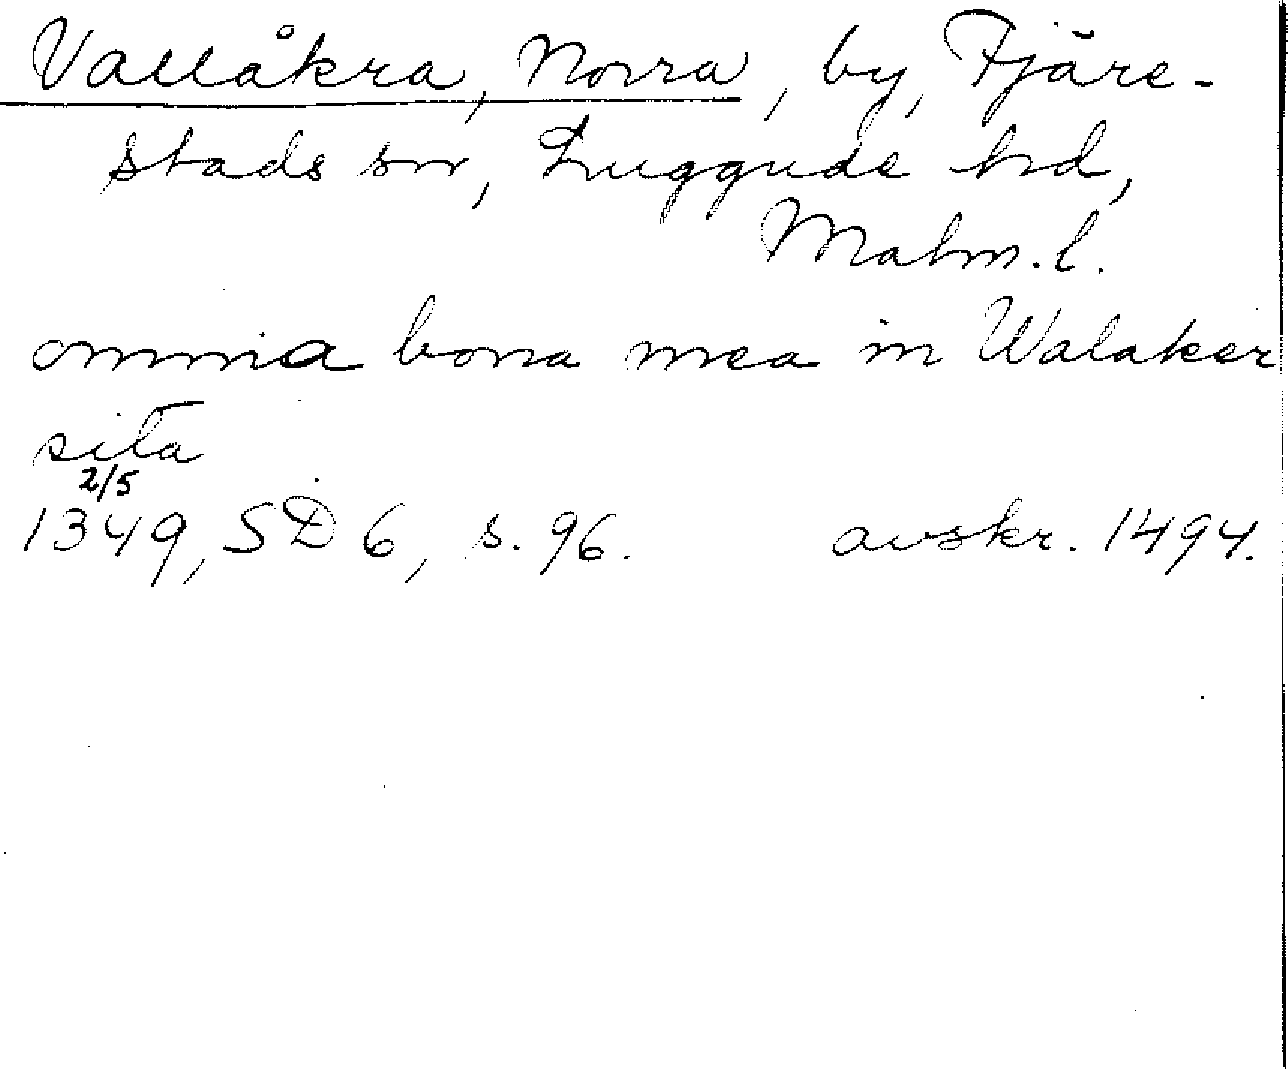 Vallåkra, Norra, by, Fjäre-
stads sn, Luggude hd,
Malm. l.
omnia bona mea in Walaker
sita
2/5
1349, SD 6, s. 96. avskr. 1494.